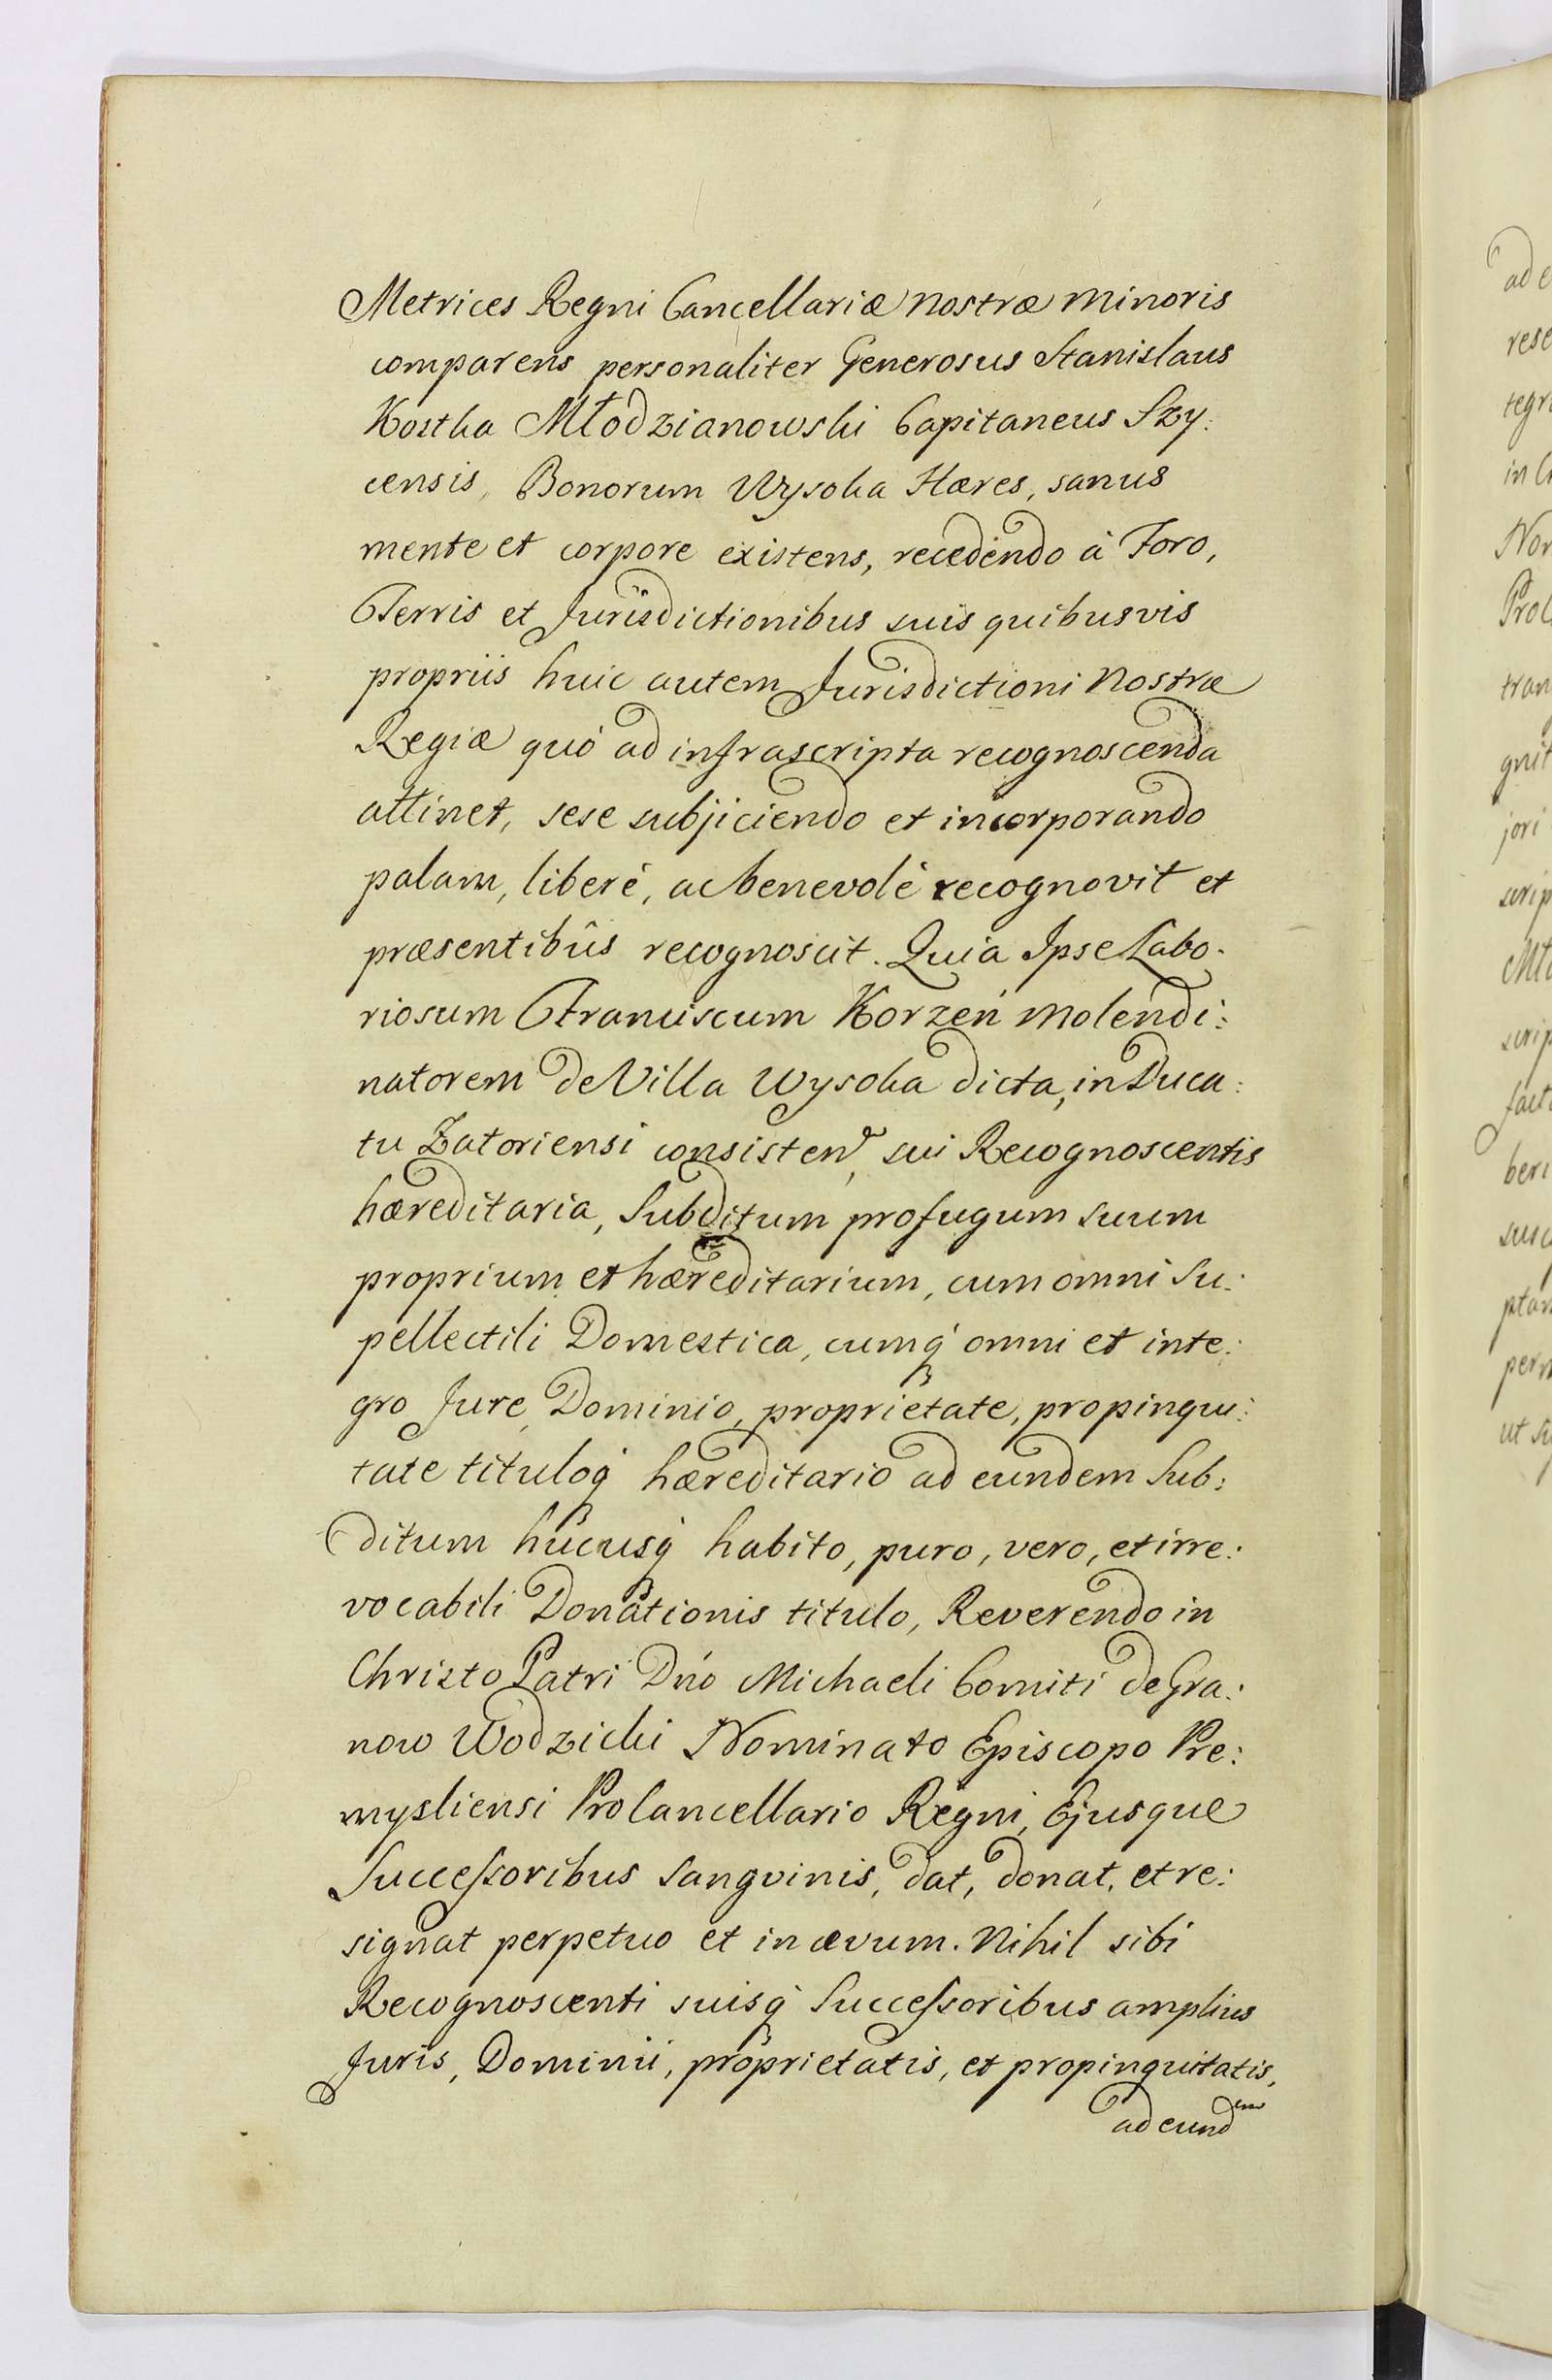 Metrices Regni Cancellariæ nostræ minoris
comparens personaliter Generosus Stanislaus
Kostka Młodzianowski Capitaneus Szy:
censis, Bonorum Wysoka Hæres, sanus
mente et corpore existens, recedendo à Foro,
Terris et Jurisdictionibus suis quibusvis
propriis huic autem Jurisdictioni nostræ
Regiæ quò ad infrascripta recognoscenda
attinet, sese subjiciendo et incorporando
palam, liberè, ac benevolè recognovit et
præsentibûs recognoscit. Quia Ipse Labo-
riosum Franciscum Korzeń molendi:
natorem de Villa Wysoka dicta, in Duca:
tu Zatoriensi consisten̄, sui Recognoscentis
hæreditaria, Subditum profugum suum
proprium et hæreditarium, cum omni Su:
pellectili Domestica, cumq́ omni et inte:
gro Jure, Dominio, proprietate, propinqui:
tate tituloq́ hæreditario ad eundem Sub:
ditum hucusq́ habito, puro, vero, et irre:
vocabili Donationis titulo, Reverendo in
Christo Patri Dńo Michaeli Comiti de Gra:
now Wodzicki Nominato Episcopo Pre:
mysliensi ProCancellario Regni, Ejusque
Succeſsoribus Sangvinis, dat, donat, et re:
signat perpetuo et in ævum. Nihil sibi
Recognoscenti suisq́ Succeſsoribus amplius
Juris, Dominii, proprietatis, et propinquitatis,
ad eundem
ad e
rese
tegr
in C
Nor
Pro
tran
gnit
jori
scrip
Mło
scrip
fact
beri
susc
ptam
perm
ut su